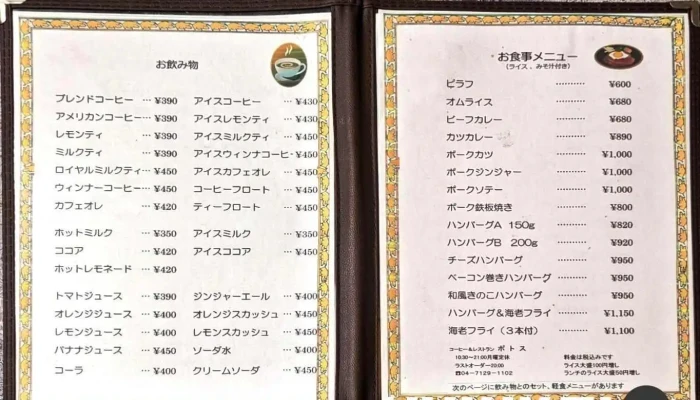 お飲み物
ブレンドコーヒー … ¥390 アイスコーヒー … ¥430
アメリカンコーヒー … ¥390 アイスレモンティ … ¥430
レモンティ … ¥390 アイスミルクティ … ¥450
ミルクティ … ¥390 アイスウィンナコーヒー ¥450
ロイヤルミルクティ … ¥450 アイスカフェオレ … ¥450
ウィンナーコーヒー … ¥450 コーヒーフロート … ¥450
カフェオレ … ¥420 ティーフロート … ¥450
ホットミルク … ¥350 アイスミルク … ¥350
ココア … ¥420 アイスココア … ¥450
ホットレモネード … ¥420
トマトジュース … ¥390 ジンジャーエール … ¥400
オレンジジュース … ¥400 オレンジスカッシュ … ¥450
レモンジュース … ¥400 レモンスカッシュ … ¥450
バナナジュース … ¥450 ソーダ水 … ¥400
コーラ … ¥400 クリームソーダ … ¥450
お食事メニュー
(ライス、みそ汁付き)
ピラフ ………… ¥600
オムライス ………… ¥680
ビーフカレー ………… ¥680
カツカレー ………… ¥890
ポークカツ ………… ¥1,000
ポークジンジャー ………… ¥1,000
ポークソテー ………… ¥1,000
ポーク鉄板焼き ………… ¥800
ハンバーグA 150g ………… ¥820
ハンバーグB 200g ………… ¥920
チーズハンバーグ ………… ¥950
ベーコン巻きハンバーグ ………… ¥950
和風きのこハンバーグ ………… ¥950
ハンバーグ&海老フライ ………… ¥1,150
海老フライ(3本付) ………… ¥1,100
コーヒー&レストラン ポトス
10:30〜21:00月曜定休 料金は税込みです
ラストオーダー20:00 ライス大盛100円増し
☎04-7129-1102 ランチのライス大盛50円増し
次のページに飲み物とのセット、軽食メニューがあります